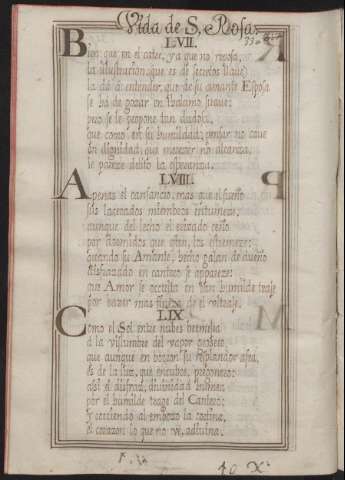 Vida de S. Rosa.
LVII.
Bien que en el catre, ya que no reposa,
la ilustracion, que es de secretos llave
la dà à entender, que de su amante Esposa
se hà de gozar en thalamo suave;
pero se le propone tan dudosa,
que como en su humildad, pensar no cave
en dignidad, que merecer no alcanza,
le parece delito la esperanza.
LVIII.
Apenas el cansancio, mas que el sueño
sus lacerados miembros entumece,
aunque del lecho el erizado ceño
por dormidos que esten, los estremece;
quando su Amante, hecho galan de empeño
disfrazado en cantero se aparece;
que Amor se occulta en tan humilde traje
por hacer mas fineza de el ultraje.
LIX
Como el Sol entre nubes bermejea
à la vislumbre del vapor
que aunque en borron su resplandor afea,
es de la luz, que encubre, pregonero:
assi el disfraz, divinidad
por el humilde trage del Cantero;
y cediendo al embozo la cortina,
el corazon lo que no vè, adivina.